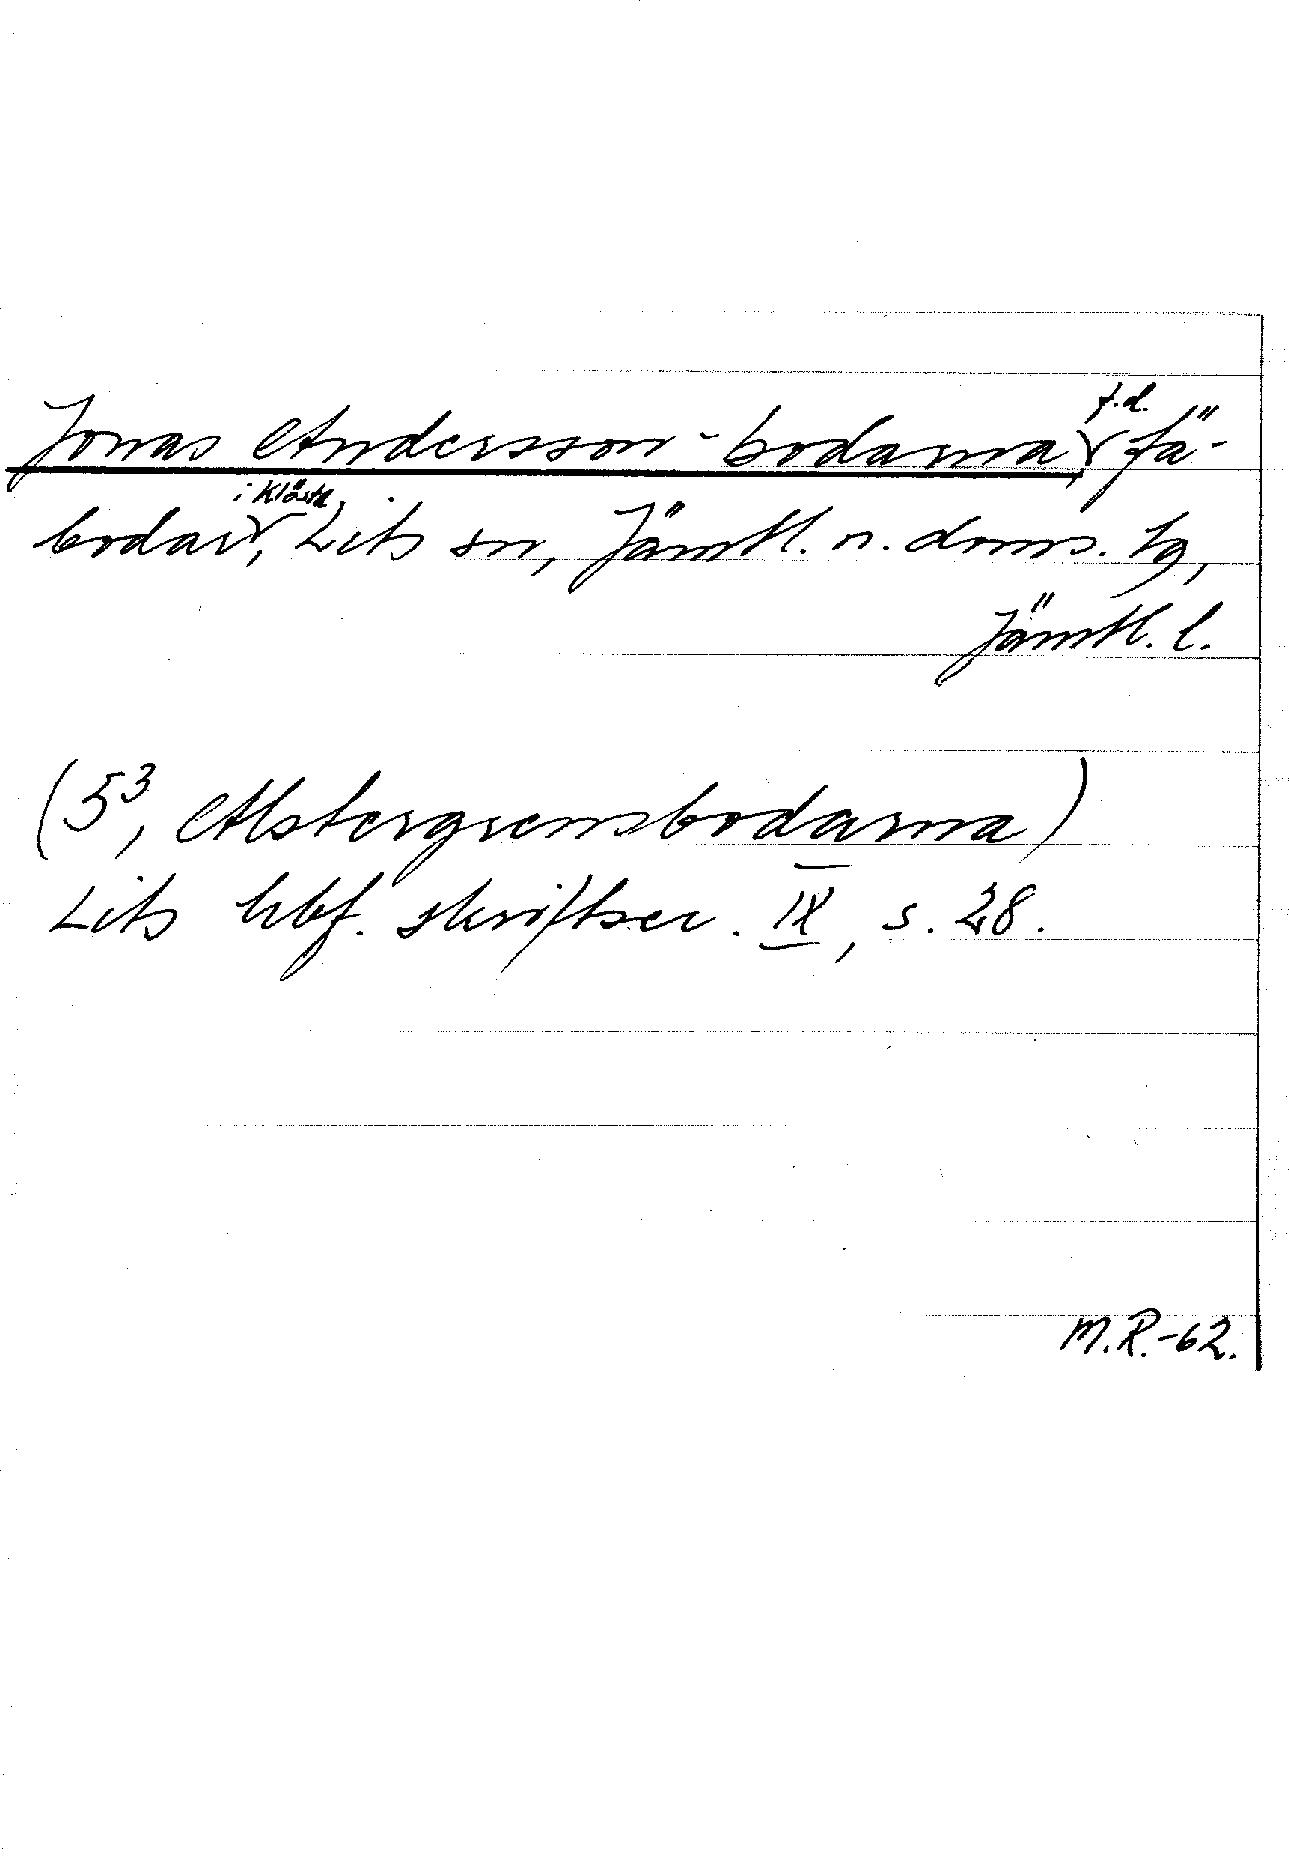 Jonas Andersson-bodarna, f.d. fä-
bodar i Klösta, Lits sn, Jämtl. n. doms. tg,
Jämtl. l.
(5³, Alstergrensbodarna)
Lits hbf. skriftser. IX, s. 28.
M.R.-62.